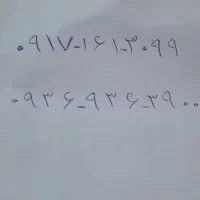 ۰۹۱۷-۱۶۱-۳۰۹۹
۰۹۳۶-۹۳۶-۳۹۰۰